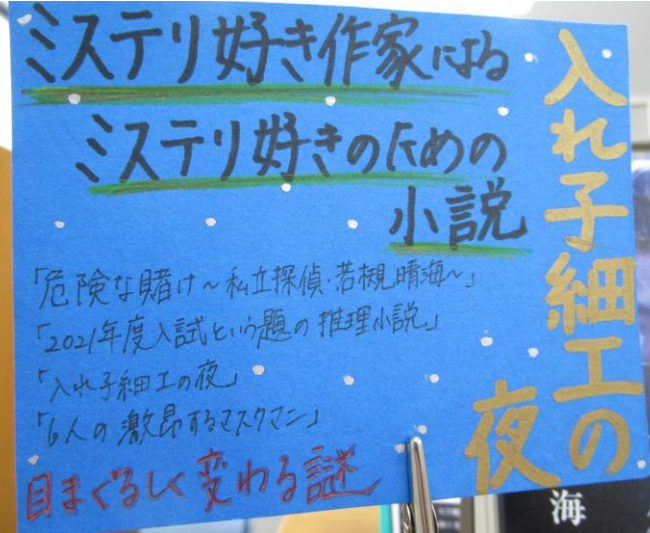 ミステリ好き作家による
ミステリ好きのための
小説
入れ子細工の
夜
「危険な賭け〜私立探偵・若槻晴海〜」
「2021年度入試という題の推理小説」
「入れ子細工の夜」
「6人の激昂するマスクマン」
目まぐるしく変わる謎
海